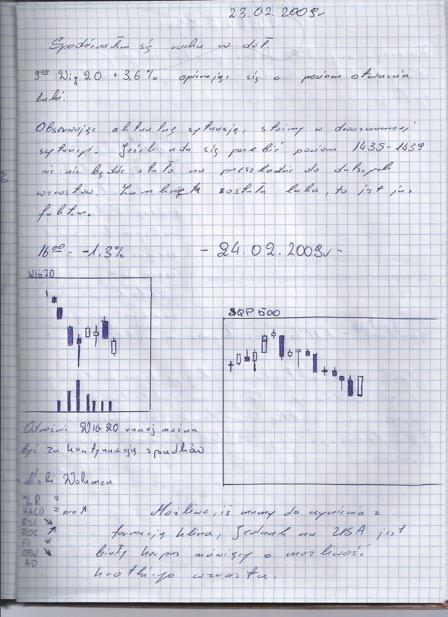 23.02.2009r
Spodziewałem się ruchu w dół
9⁰⁰ Wig 20 +3,6% opierając się o poziom otwarcia
luki.
Obserwując aktualną sytuację, stoimy w
sytuacji. Jeżeli uda się przebić poziom 1435-1439
nic nie będzie stało na przeszkodzie do dalszych
wzrostów. Zamknięta została luka, to jest już
faktem.
16⁰⁰ - -1,3%
- 24.02.2009r -
WIG20
S&P 500
Odnośnie WIG 20 można
być za kontynuacją spadków
Niski Wolumen
%R
MACD
RSI ↘
ROC ↗
OBV ↘
AD
Możliwe, iż mamy do czynienia z
formacją klina, Jednak na USA jest
biały korpus mówiący o możliwość
krótkiego wzrostu.